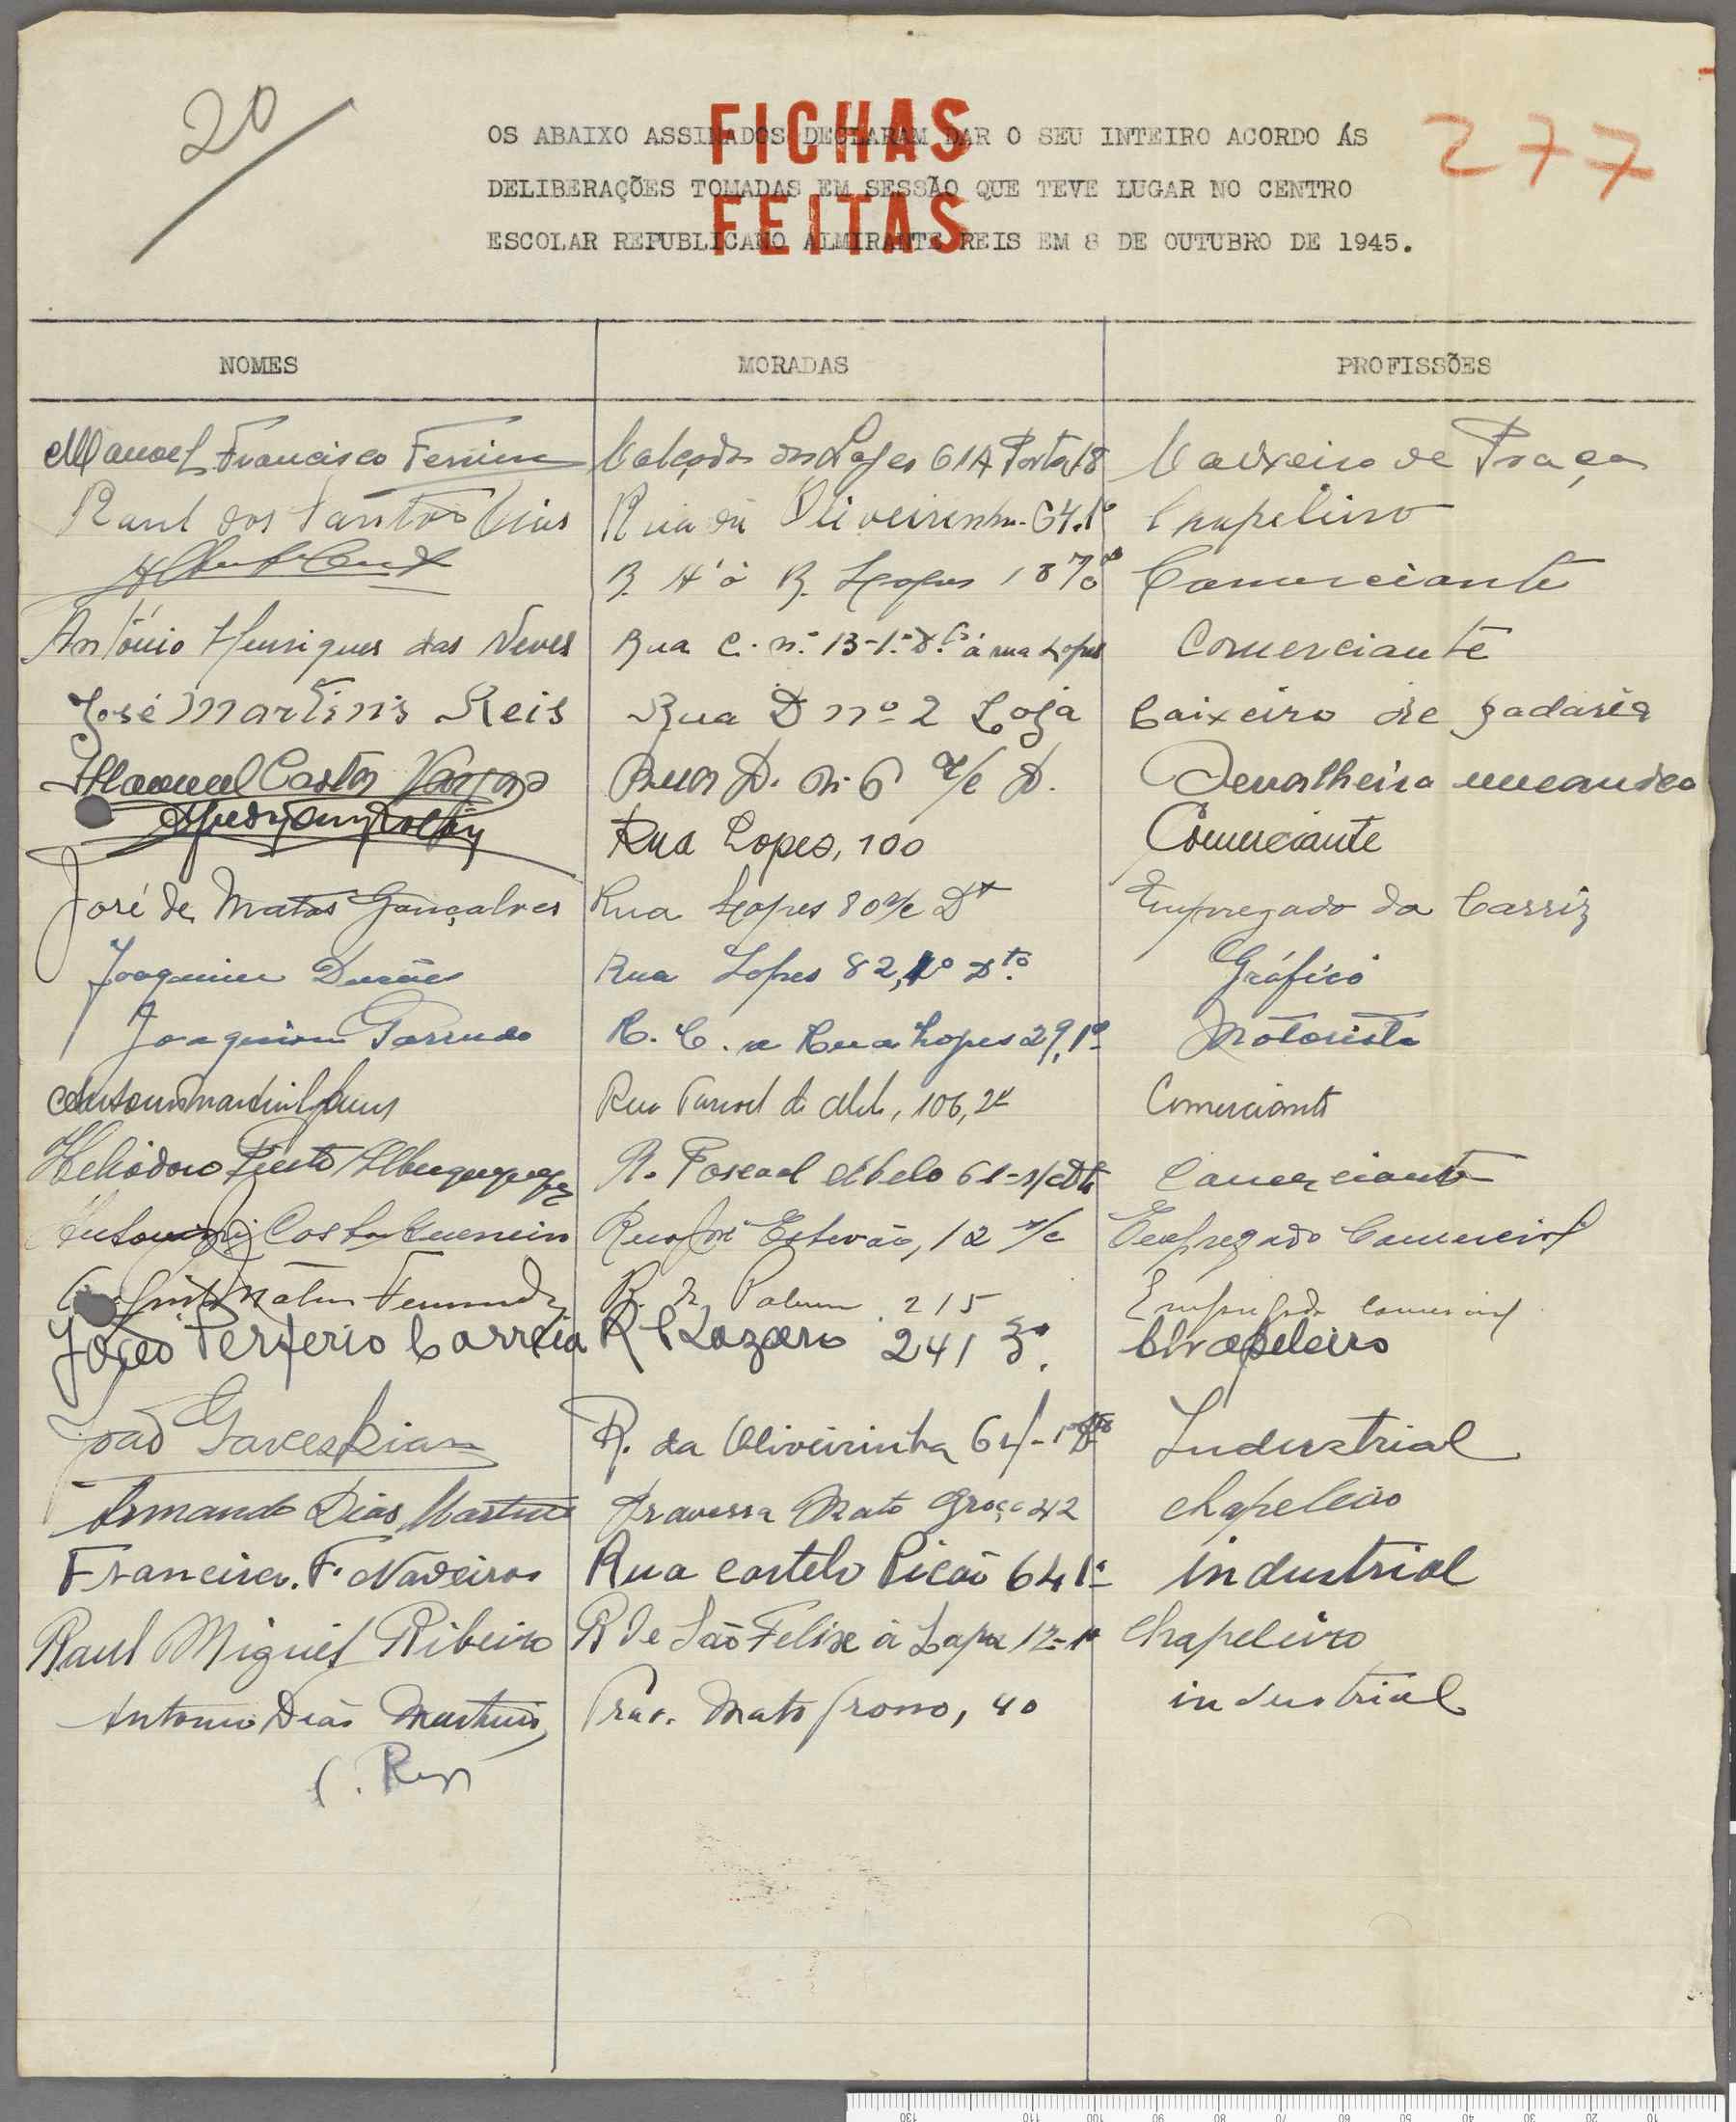 20
FICHAS
FEITAS
277
OS ABAIXO ASSINADOS DECLARAM DAR O SEU INTEIRO ACORDO ÁS
DELIBERAÇÕES TOMADAS EM SESSÃO QUE TEVE LUGAR NO CENTRO
ESCOLAR REPUBLICANO ALMIRANTE REIS EM 8 DE OUTUBRO DE 1945.
NOMES MORADAS PROFISSÕES
Manoel Francisco Calçada das Lages 61A Porta 18 Caixeiro de Praça
Raul dos Santos Rua da Oliveirinha 64.1º Chapeleiro
R. Lopes Comerciante
António Henriques das Neves Rua C. nº 13-1º Dto á rua Lopes Comerciante
José Martins Reis Rua D nº 2 Loja Caixeiro de padaria
Manuel Castor Rua D. nº 6 r/c D. Serralheiro mecanico
Rua Lopes, 100 Comerciante
José de Matos Gonçalves Rua Lopes 80 r/c Dt Empregado da Carris
Joaquim Rua Lopes 82, 1º Dto. Gráfico
Joaquim R. C. a Rua Lopes 29, 1º Motorista
Rua Pascoal de Melo, 106, 2º Comerciante
Heliodoro Pinto Albuquerque R. Pascoal de Melo 61-r/c Dto Comerciante
Costa Guerreiro Rua José Estevão, 12 r/c Empregado Comercial
Matos R. da Palma 215 Empregado Comercial
João Perferio Correia R S Lazaro 241 3º. Chapeleiro
João R. da Oliveirinha 64-1º Dto Industrial
Armando Dias Martins Travessa Mato Groço 42 chapeleiro
Francisco. F. Rua castelo Picão 64 1º industrial
Raul Miguel Ribeiro R de São Felix á Lapa 12-1º Chapeleiro
Antonio Dias Martins Trav. Mato Grosso, 40 industrial